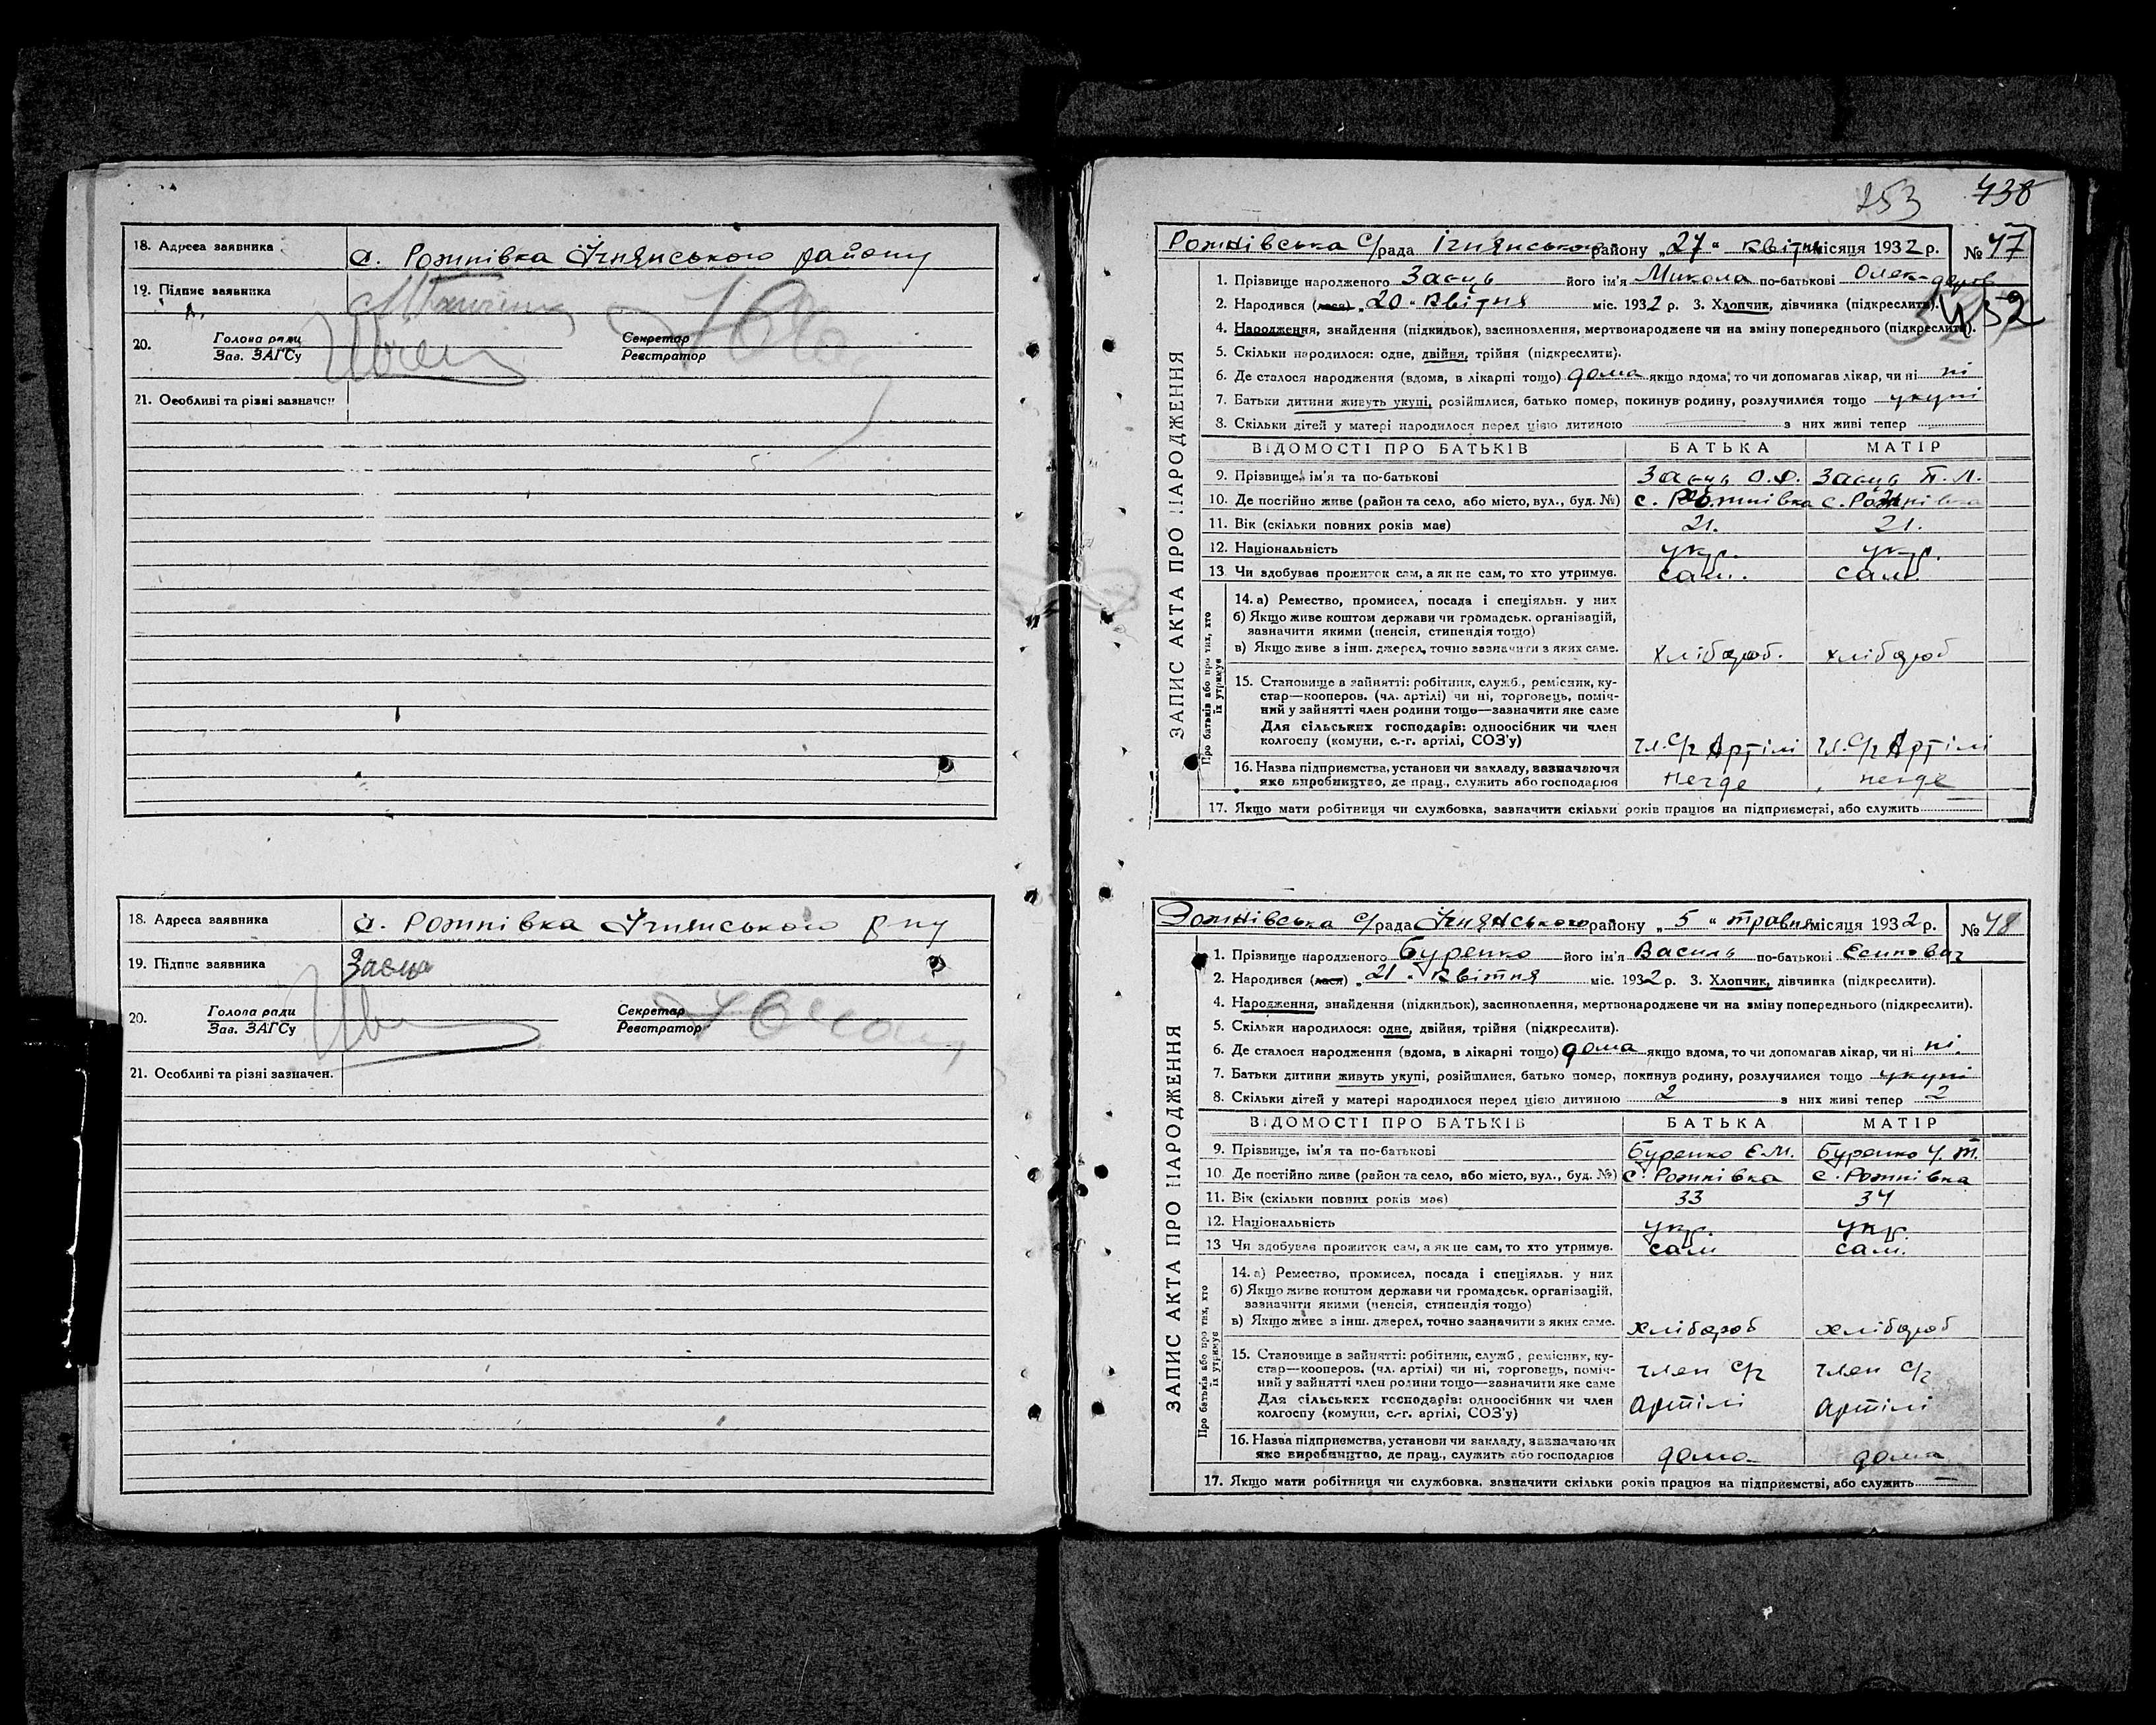 18. Адреса заявника с. Рожнівка Ічнянського району
19. Підпис заявника
20. Голова ради Секретар
Зав. ЗАГСу Реєстратор
21. Особливі та різні зазначен
18. Адреса заявника с. Рожнівка Ічнянського р-ну
19. Підпис заявника Заєць
20. Голова ради Секретар
Зав. ЗАГСу Реєстратор
21. Особливі та різні зазначен.
253 438
Рожнівська с/рада Ічнянського району „27“ квітня місяця 1932 р. № 47
ЗАПИС АКТА ПРО НАРОДЖЕННЯ
1. Прізвище народженого Заєць його ім'я Микола по-батькові
452
2. Народився (лася) „20“ квітня міс. 1932 р. 3. Хлопчик, дівчинка (підкреслити).
4. Народження, знайдення (підкидьок), засиновлення, мертвонароджене чи на зміну попереднього (підкреслити).
5. Скільки народилося: одне, двійня, трійня (підкреслити).
6. Де сталося народження (вдома, в лікарні тощо) дома якщо вдома, то чи допомагав лікар, чи ні ні
7. Батьки дитини живуть укупі, розійшлися, батько помер, покинув родину, розлучилися тощо укупі
8. Скільки дітей у матері народилося перед цією дитиною з них живі тепер
ВІДОМОСТІ ПРО БАТЬКІВ БАТЬКА МАТІР
9. Прізвище, ім'я та по-батькові Заєць О. Заєць П. Л.
10. Де постійно живе (район та село, або місто, вул., буд. №) с. Рожнівка с. Рожнівка
11. Вік (скільки повних років має) 21. 21.
12. Національність укр. укр.
13 Чи здобував прожиток сам, а як не сам, то хто утримує. сам. сам.
Про батьків або про тих, хто їх утримує
14. а) Ремество, промисел, посада і спеціяльн. у них
б) Якщо живе коштом держави чи громадськ. організацій,
зазначити якими (пенсія, стипендія тощо)
в) Якщо живе з інш. джерел, точно зазначити з яких саме. хлібороб. хлібороб
15. Становище в зайнятті: робітник, служб., ремісник, ку-
стар—кооперов. (чл. артілі) чи ні, торговець, поміч-
ний у зайнятті член родини тощо—зазначити яке саме
Для сільських господарів: одноосібник чи член
колгоспу (комуни, с.-г. артілі, СОЗ'у) чл. С/г Артілі чл. С/г Артілі
16. Назва підприємства, установи чи закладу, зазначаючи
яке виробництво, де прац., служить або господарює
17. Якщо мати робітниця чи службовка, зазначити скільки років працює на підприємстві, або служить
Рожнівська с/рада Ічнянського району „5“ травня місяця 1932 р. № 48
ЗАПИС АКТА ПРО НАРОДЖЕННЯ
1. Прізвище народженого Буренко його ім'я Василь по-батькові Єсипович
2. Народився (лася) „21“ квітня міс. 1932 р. 3. Хлопчик, дівчинка (підкреслити).
4. Народження, знайдення (підкидьок), засиновлення, мертвонароджене чи на зміну попереднього (підкреслити).
5. Скільки народилося: одне, двійня, трійня (підкреслити).
6. Де сталося народження (вдома, в лікарні тощо) дома якщо вдома, то чи допомагав лікар, чи ні ні.
7. Батьки дитини живуть укупі, розійшлися, батько помер, покинув родину, розлучилися тощо укупі
8. Скільки дітей у матері народилося перед цією дитиною 2 з них живі тепер 2
ВІДОМОСТІ ПРО БАТЬКІВ БАТЬКА МАТІР
9. Прізвище, ім'я та по-батькові Буренко Є.М. Буренко У. Т.
10. Де постійно живе (район та село, або місто, вул., буд. №) с. Рожнівка с. Рожнівка
11. Вік (скільки повних років має) 33 34
12. Національність укр. укр.
13 Чи здобував прожиток сам, а як не сам, то хто утримує. сам. сам.
Про батьків або про тих, хто їх утримує
14. а) Ремество, промисел, посада і спеціяльн. у них
б) Якщо живе коштом держави чи громадськ. організацій,
зазначити якими (пенсія, стипендія тощо)
в) Якщо живе з інш. джерел, точно зазначити з яких саме. хлібороб хлібороб
15. Становище в зайнятті: робітник, служб., ремісник, ку-
стар—кооперов. (чл. артілі) чи ні, торговець, поміч- член С/г член С/г
ний у зайнятті член родини тощо—зазначити яке саме
Для сільських господарів: одноосібник чи член Артілі Артілі
колгоспу (комуни, с.-г. артілі, СОЗ'у)
16. Назва підприємства, установи чи закладу, зазначаючи
яке виробництво, де прац., служить або господарює дома дома
17. Якщо мати робітниця чи службовка, зазначити скільки років працює на підприємстві, або служить